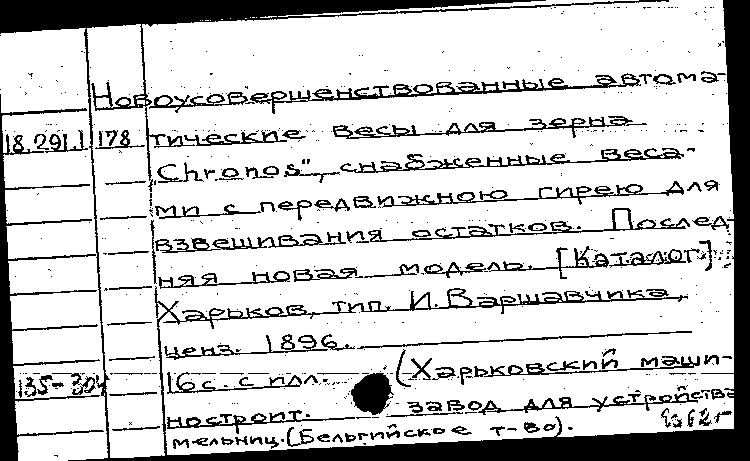 Новоусовершенствованные автома-
18.291.1 178 тические весы для зерна
Chronos", снабженные веса-
ми с передвижною гирею для
взвешивания остатков. Послед-
няя новая модель. [Каталог].
Харьков, тип. И. Варшавчика,
ценз. 1896.
135-304 16 с. с илл. (Харьковский маши-
ностроит. завод для устройства
мельниц. (Бельгийское т-во).